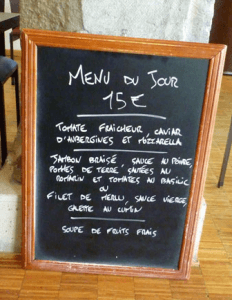 MENU DU JOUR
15€
TOMATE FRAICHEUR, CAVIAR
D'AUBERGINES ET MOZZARELLA
JAMBON BRAISÉ, SAUCE AU POIVRE,
POMMES DE TERRE SAUTÉES AU
ROMARIN ET TOMATES AU BASILIC
OU
FILET DE MERLU, SAUCE VIERGE,
GALETTE AU CUMIN
SOUPE DE FRUITS FRAIS